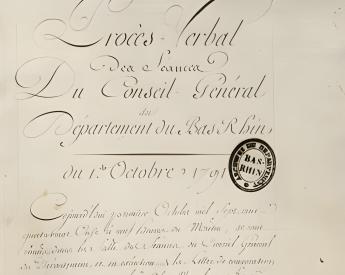 Procès-Verbal
des Séances
Du Conseil Général
du
Département du Bas Rhin,
du 1er Octobre 1791
ARCHIVES DU DEPARTEMENT
BAS-RHIN
Cejourd'hui premier Octobre mil sept cent
quatrevingt Onze à neuf heures du Matin, se sont
dans la Salle des Séances du Conseil Général
du Département, et en exécution de la Lettre de convocation